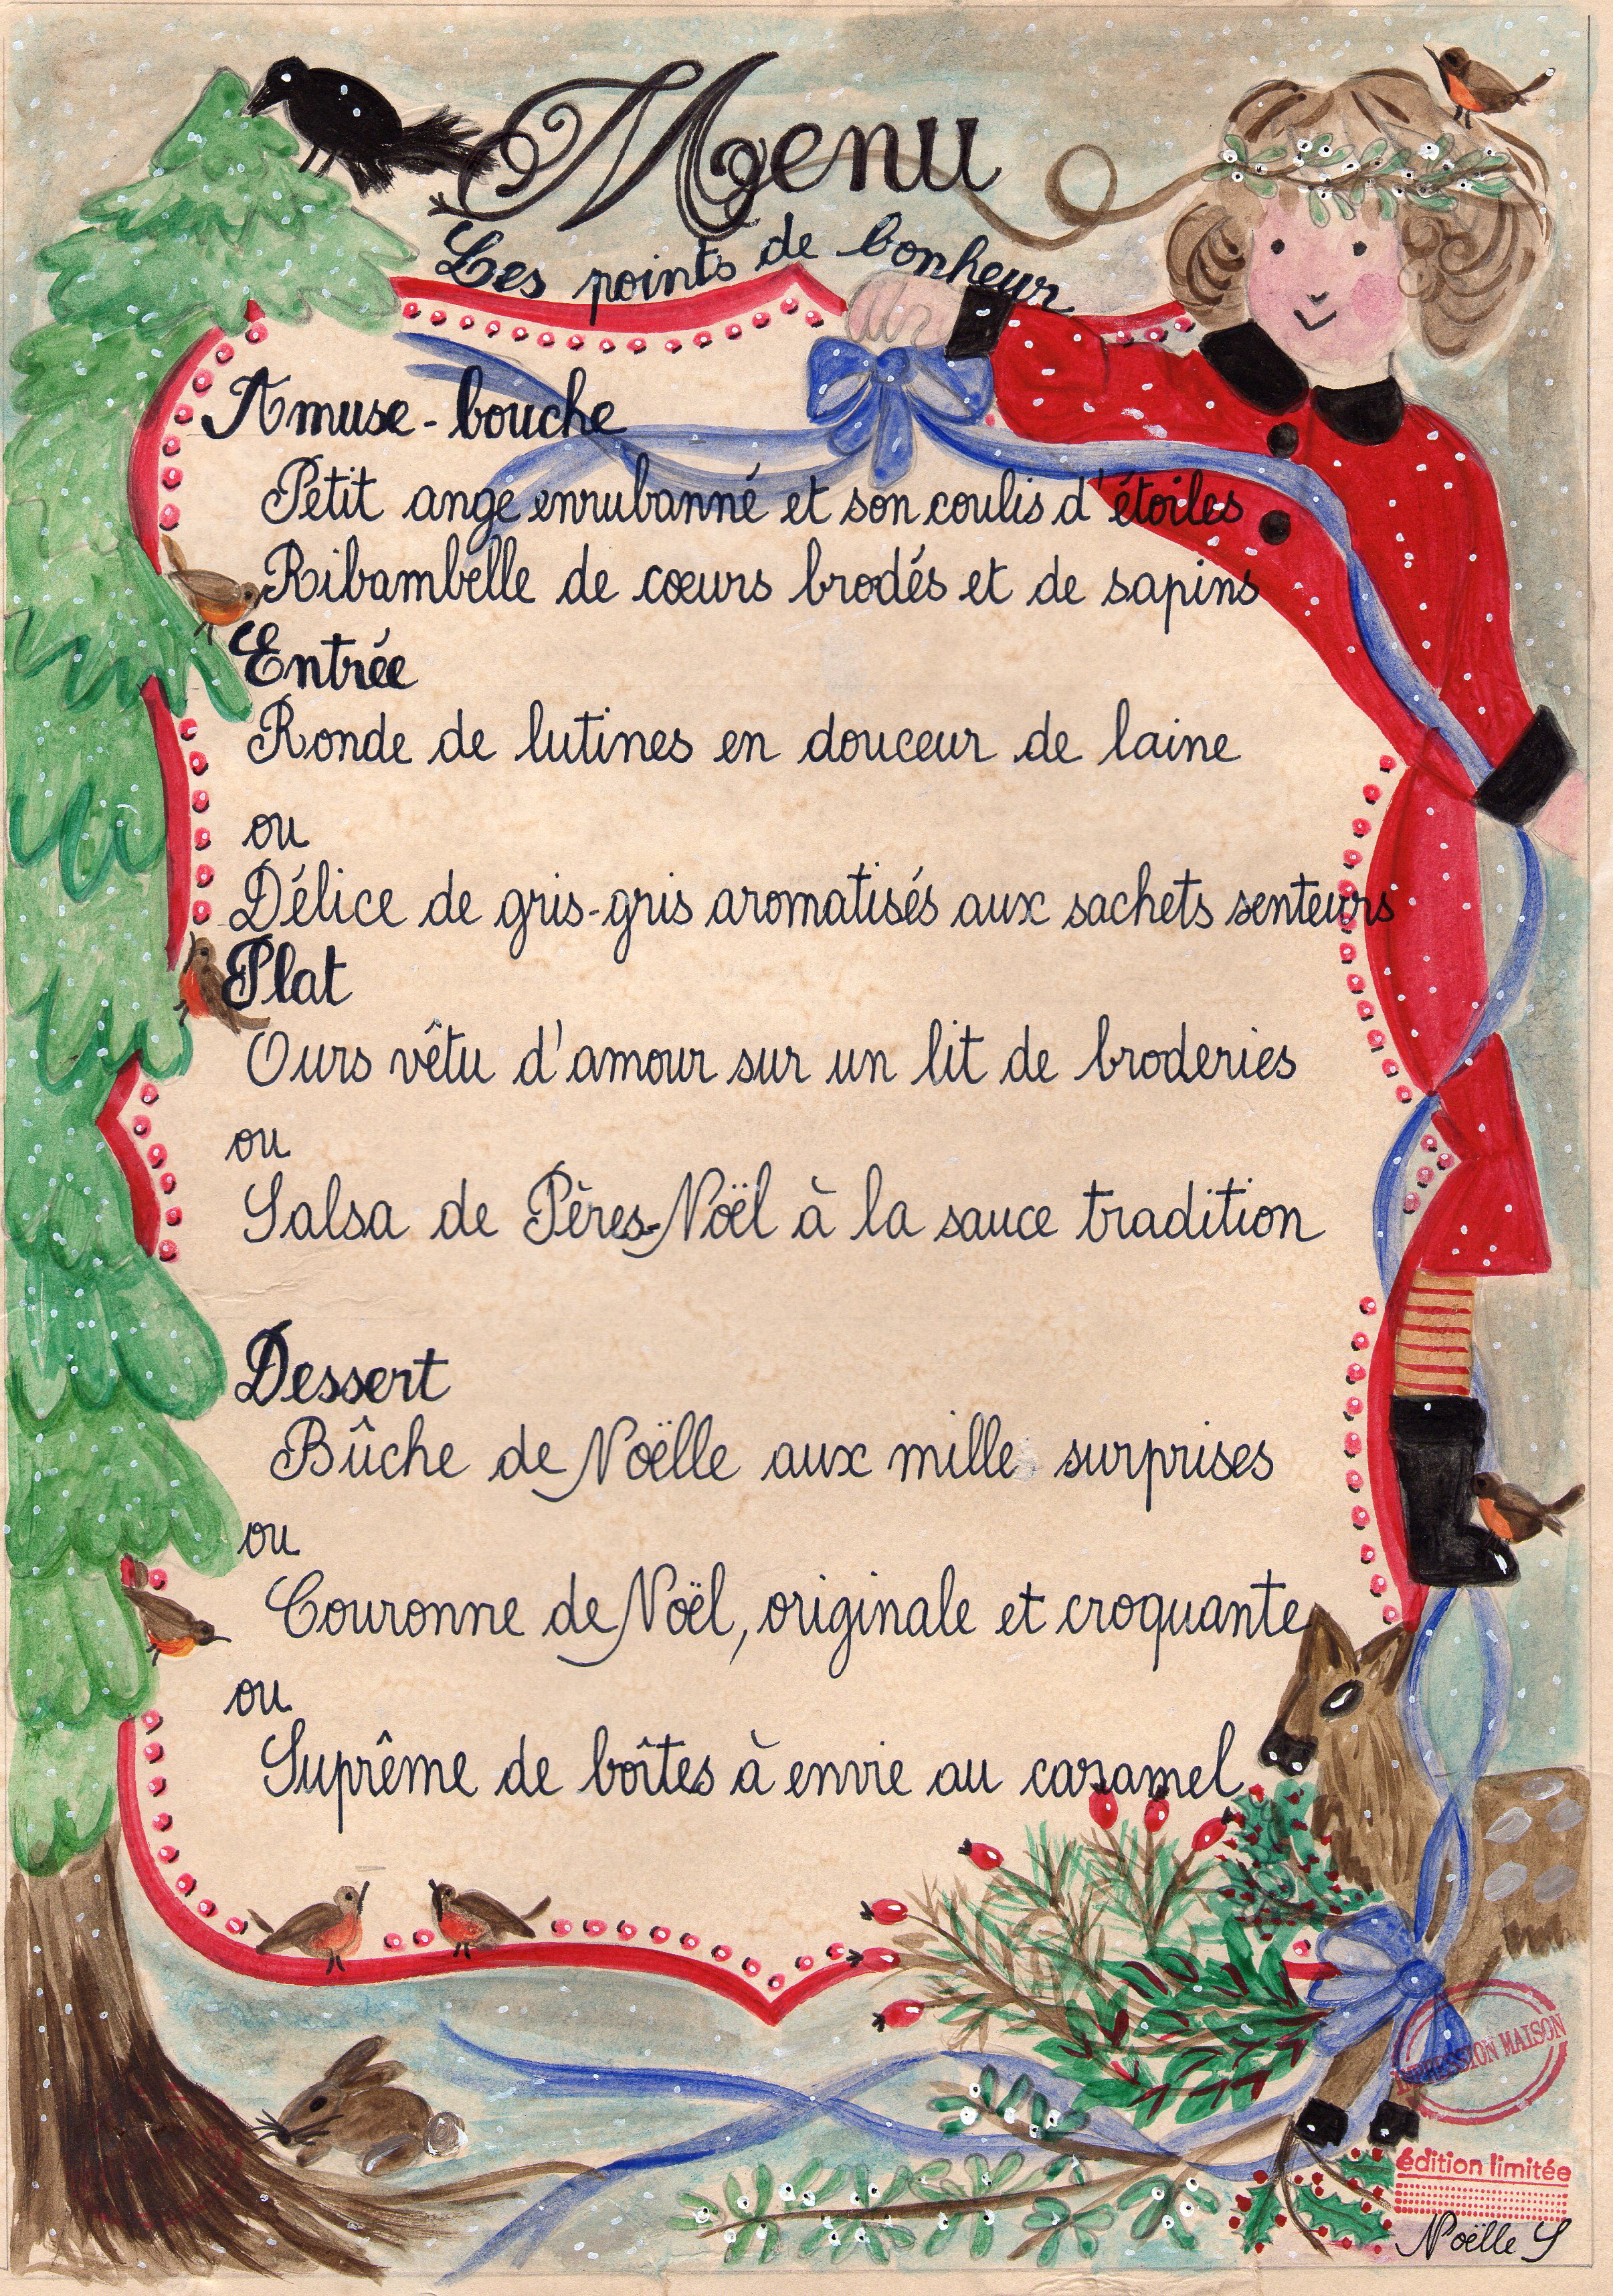 Menu
Les points de bonheur
Amuse-bouche
Petit ange enrubanné et son coulis d'étoiles
Ribambelle de cœurs brodés et de sapins
Entrée
Ronde de lutines en douceur de laine
ou
Délice de gris-gris aromatisés aux sachets senteurs
Plat
Ours vêtu d'amour sur un lit de broderies
ou
Salsa de Pères-Noël à la sauce tradition
Dessert
Bûche de Noëlle aux mille surprises
ou
Couronne de Noël, originale et croquante
ou
Suprême de boîtes à envie au caramel
IMPRESSION MAISON
édition limitée
Noëlle S